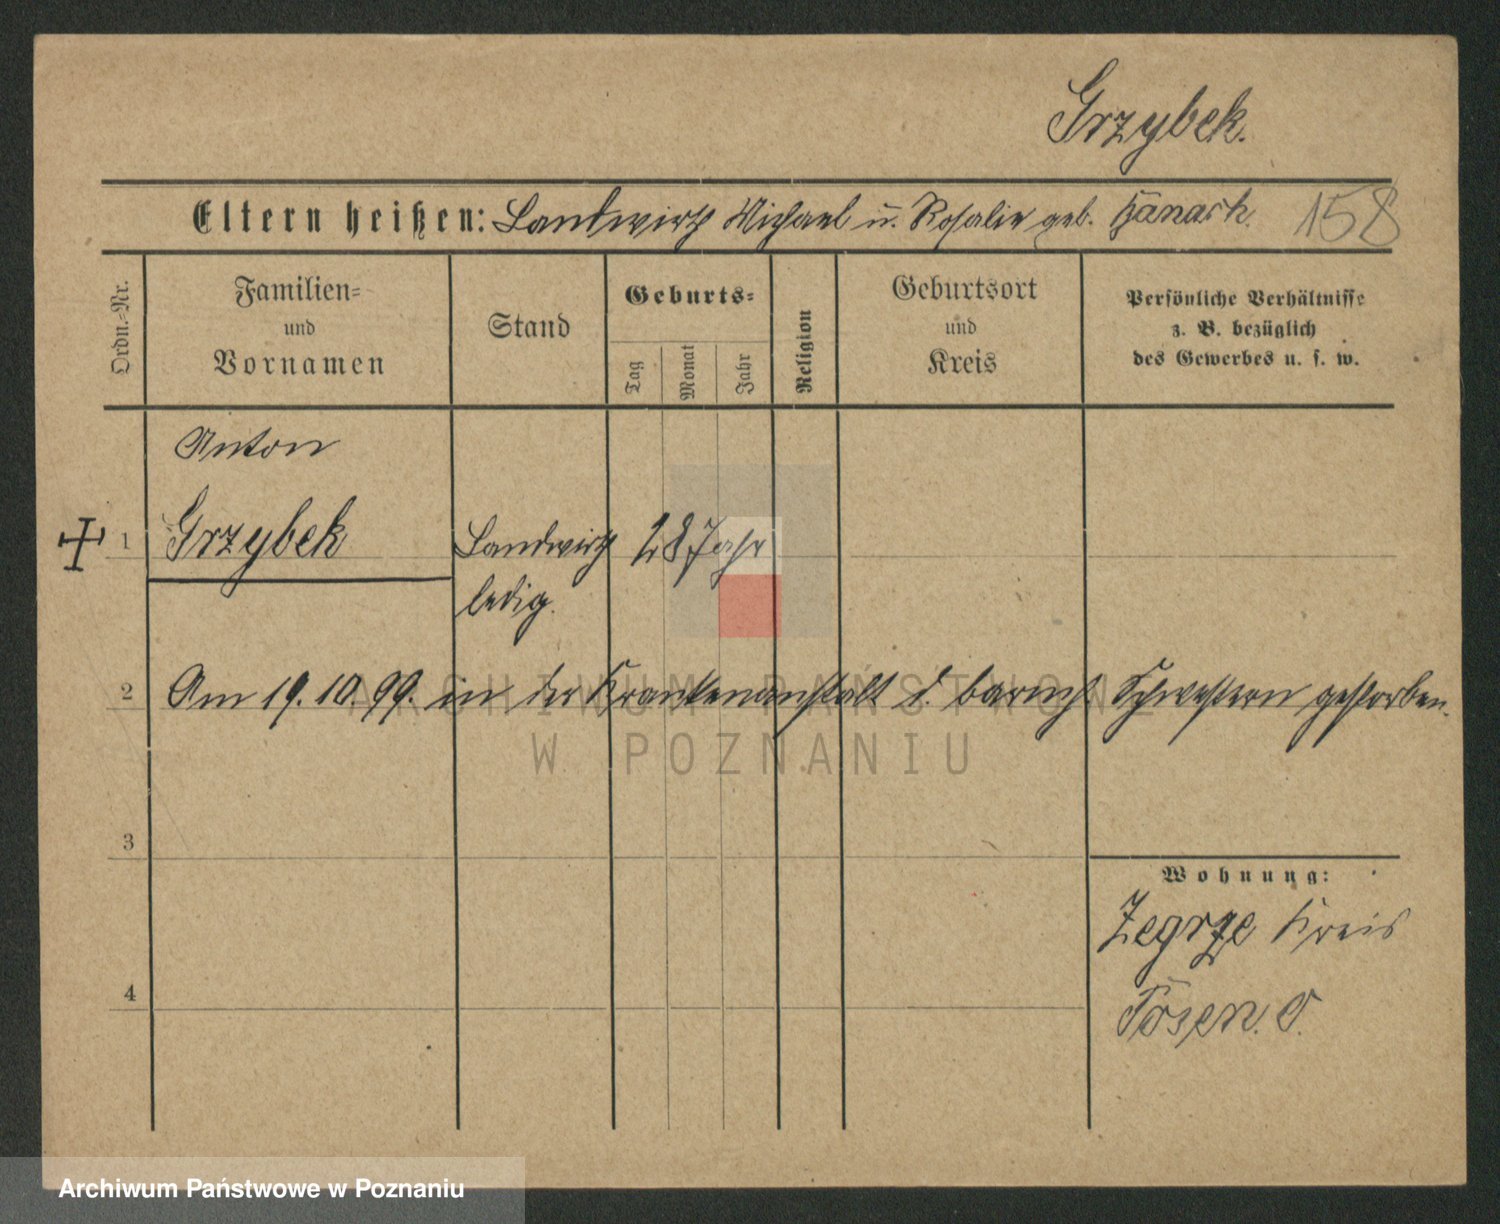 Grzybek.
Eltern heißen: Landwirth Michael u. Rosalie geb. 158
Ordn.-Nr.
Familien-
und
Vornamen
Stand
Geburts-
Tag
Monat
Jahr
Religion
Geburtsort
und
Kreis
Persönliche Verhältnisse
z. B. bezüglich
des Gewerbes u. s. w.
Anton
1 Grzybek Landwirth 28 Jahr
ledig.
2 Am 19.10.99. in der Krankenanstalt d. barmh. Schwestern gestorben.
ARCHIWUM PAŃSTWOWE
W POZNANIU
3
Wohnung:
Zegrze Kreis
4
Posen O.
Archiwum Państwowe w Poznaniu